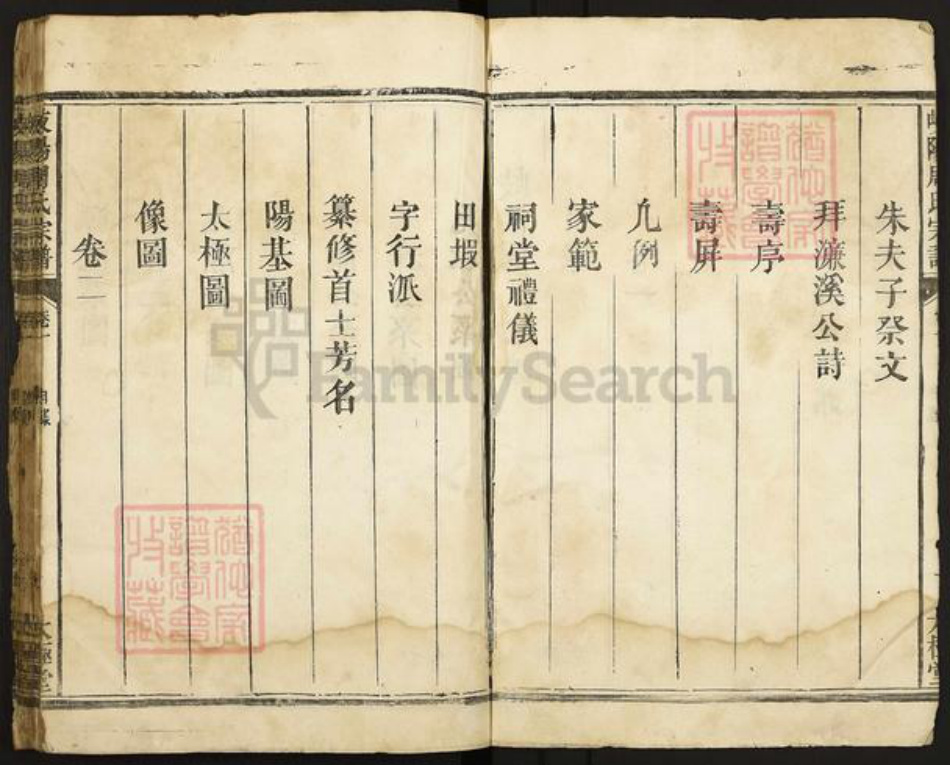 朱夫子祭文
拜濂溪公詩
壽序
壽屏
凢例
家範
祠堂禮儀
田塅
字行派
纂修首士芳名
陽基圖
太極圖
像圖
卷二
岐陽周氏宗譜
卷一
太極堂
FamilySearch